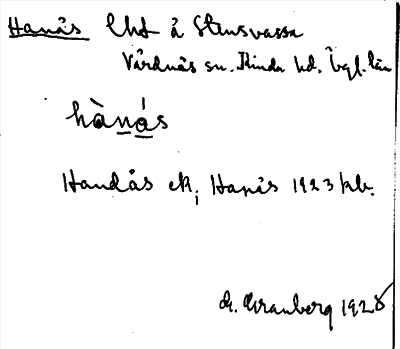 Hanås lht å Stensvassa
Vårdnäs sn. Kinda hd. Ögl. län
hànás
Handås ek; Hanås 1923 kb.
G. Granberg 1928